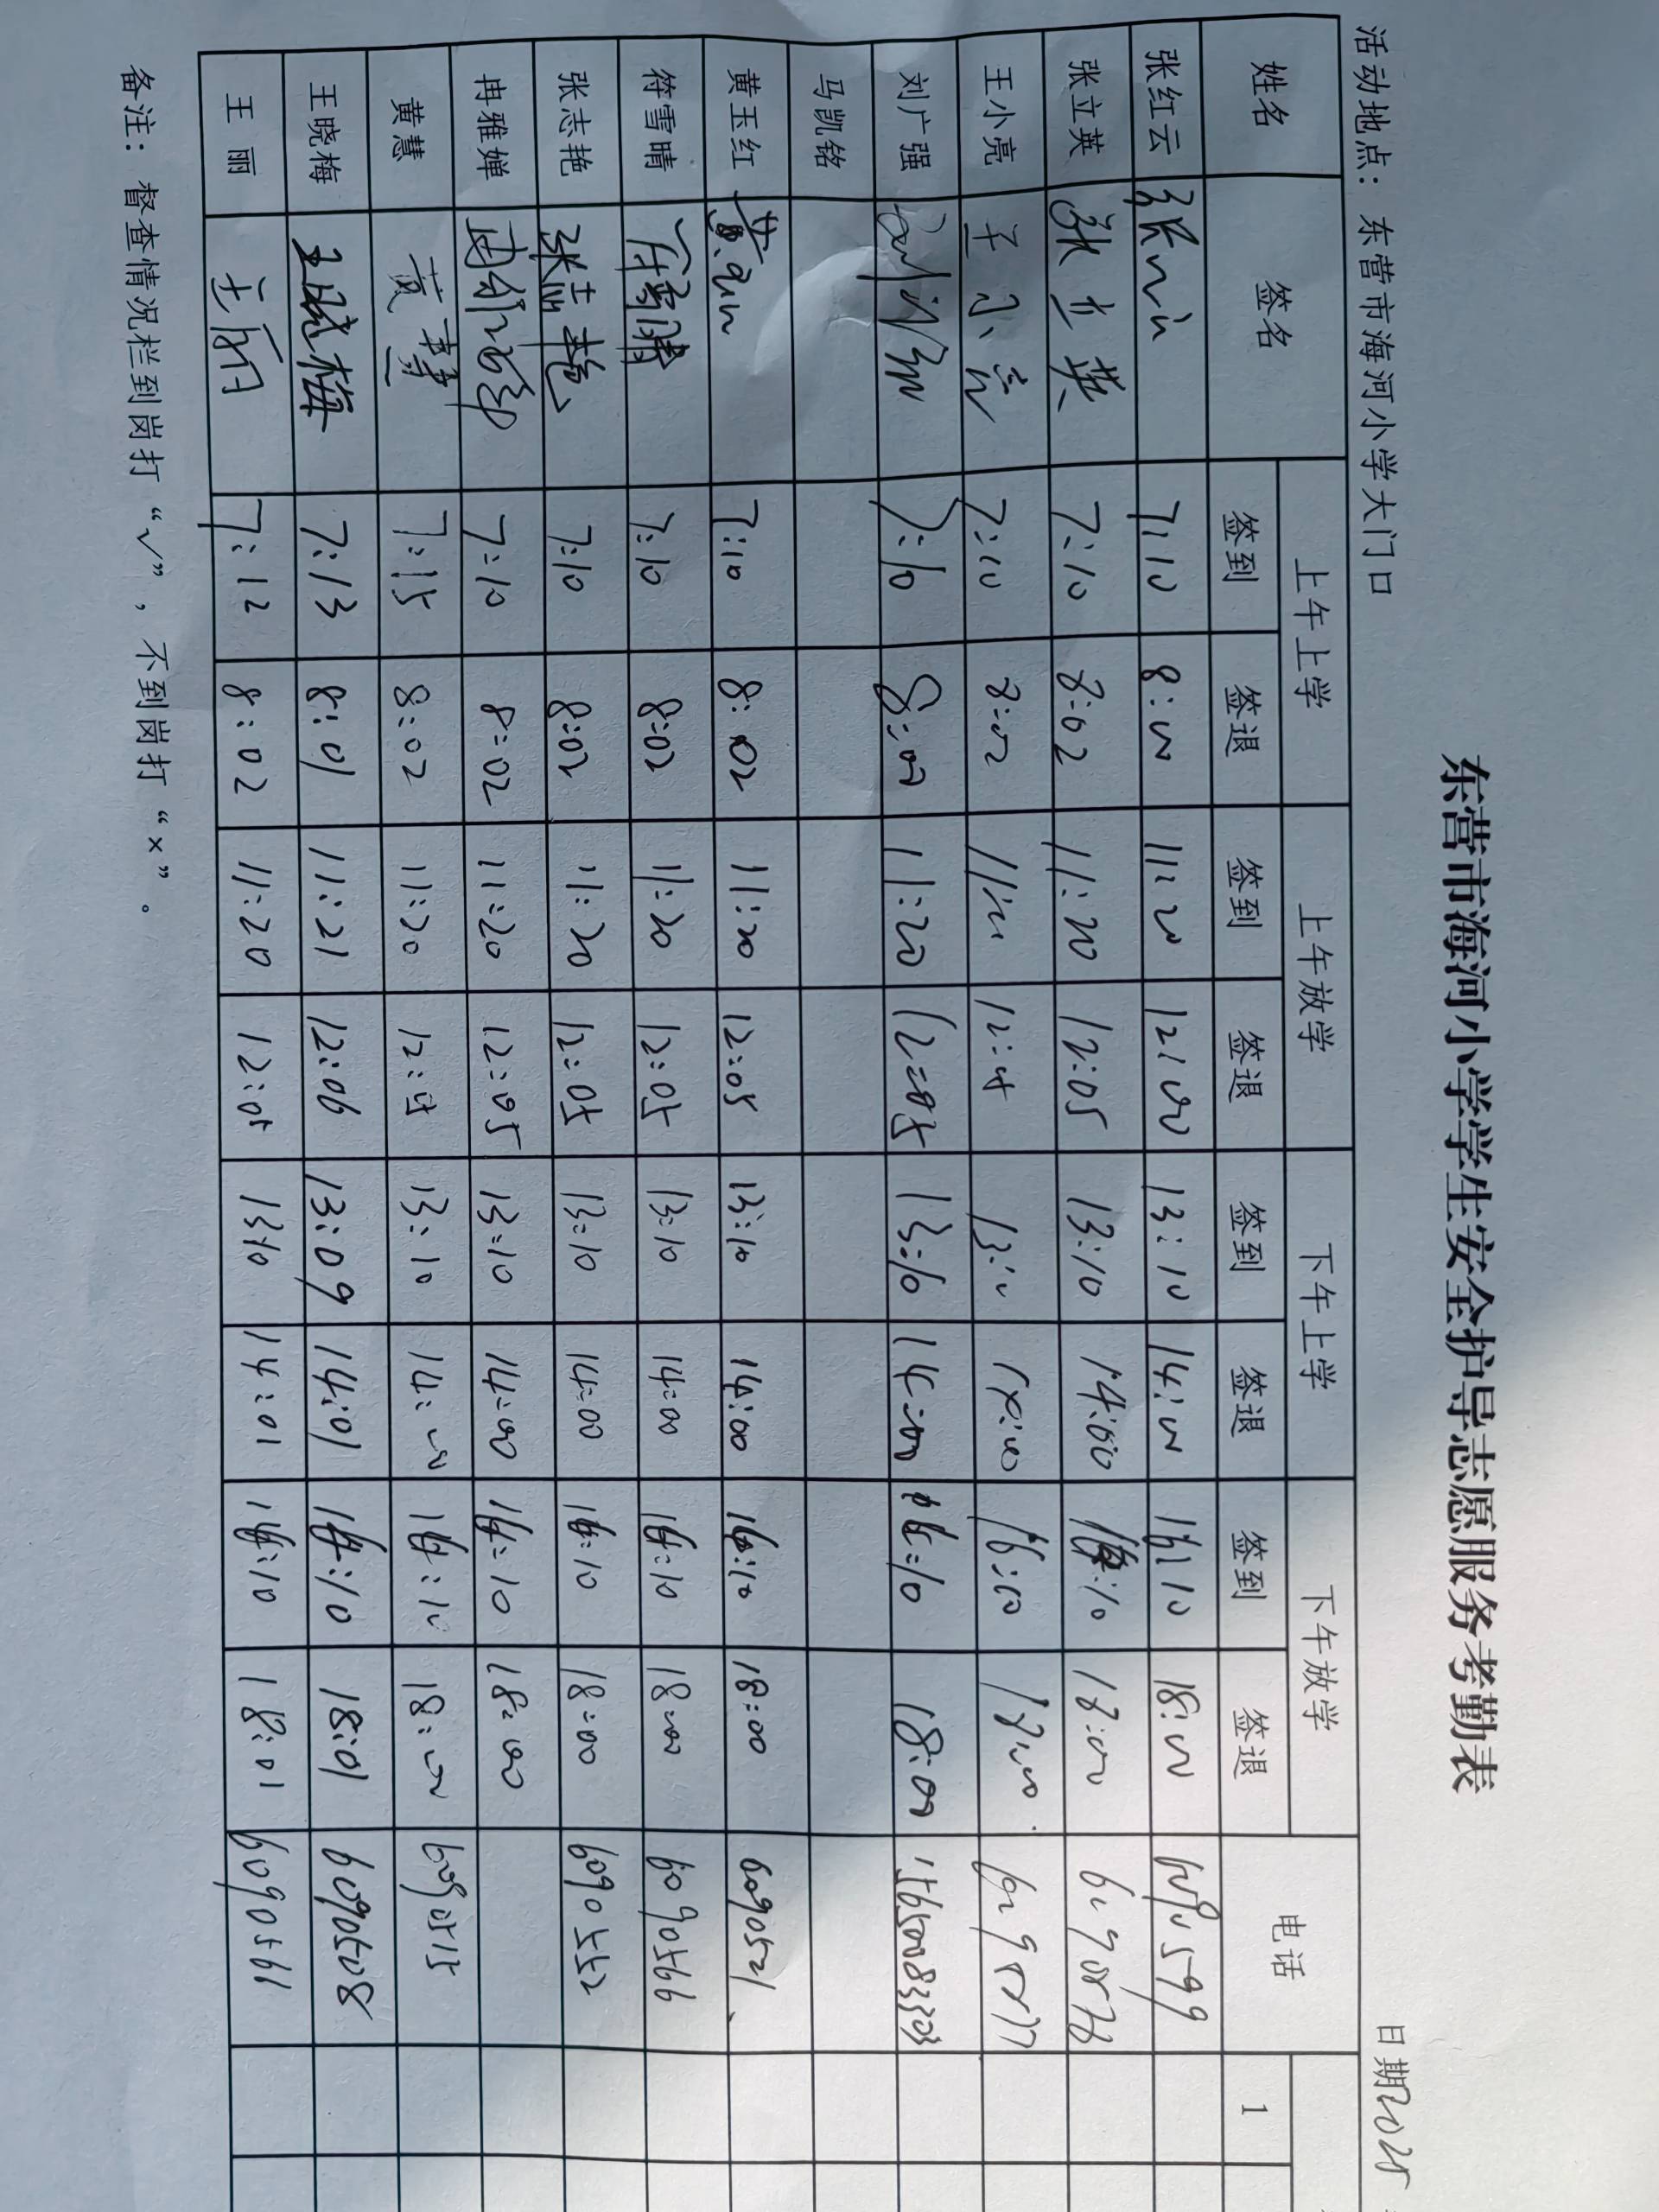 东营市海河小学学生安全护导志愿服务考勤表
活动地点：东营市海河小学大门口 日期2025
姓名 签名 上午上学 上午放学 下午上学 下午放学 电话
签到 签退 签到 签退 签到 签退 签到 签退 1
张红云 7:10 8:00 11:20 12:00 13:10 14:00 16:10 18:00
张立英 张立英 7:10 8:02 11:20 12:05 13:10 14:00 16:10 18:00
王小亮 王小亮 7:10 8:02 13:10 14:00 16:10 18:00
刘广强 刘广强 7:10 8:00 11:20 12:05 13:10 14:00 16:10 18:00
马凯铭
黄玉红 黄玉红 7:10 8:02 11:20 12:05 13:10 14:00 16:10 18:00 6090521
符雪晴 符雪晴 7:10 8:02 11:20 12:05 13:10 14:00 16:10 18:00 6090566
张志艳 张志艳 7:10 8:02 11:20 12:05 13:10 14:00 16:10 18:00 6090552
冉雅婵 冉雅婵 7:10 8:02 11:20 12:05 13:10 14:00 16:10 18:00
黄慧 黄慧 7:15 8:02 11:20 12:05 13:10 14:00 16:10 18:00 6090515
王晓梅 王晓梅 7:13 8:01 11:21 12:06 13:09 14:01 16:10 18:01 6090608
王丽 王丽 7:12 8:02 11:20 12:05 13:10 14:01 16:10 18:01 6090561
备注：督查情况栏到岗打“√”，不到岗打“×”。